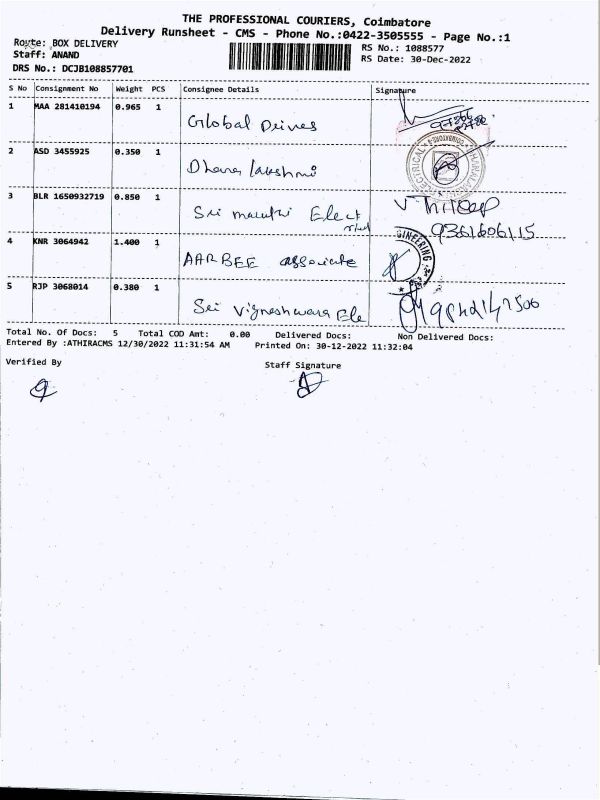 THE PROFESSIONAL COURIERS, Coimbatore
Delivery Runsheet - CMS - Phone No.:0422-3505555 - Page No.:1
Route: BOX DELIVERY
RS No.: 1088577
Staff: ANAND
RS Date: 30-Dec-2022
DRS No.: DCJB108857701
S No Consignment No Weight PCS Consignee Details Signature
1 MAA 281410194 0.965 1 Global Drives
2 ASD 3455925 0.350 1 Dhana lakshmi
ELECTRICAL
3 BLR 1650932719 0.850 1 Sri maruthi Elect
9361606115
4 KNR 3064942 1.400 1 AARBEE associate
5 RJP 3068014 0.380 1 Sri Vigneshwara Ele
Total No. Of Docs: 5 Total COD Amt: 0.00 Delivered Docs: Non Delivered Docs:
Entered By :ATHIRACMS 12/30/2022 11:31:54 AM Printed On: 30-12-2022 11:32:04
Verified By Staff Signature